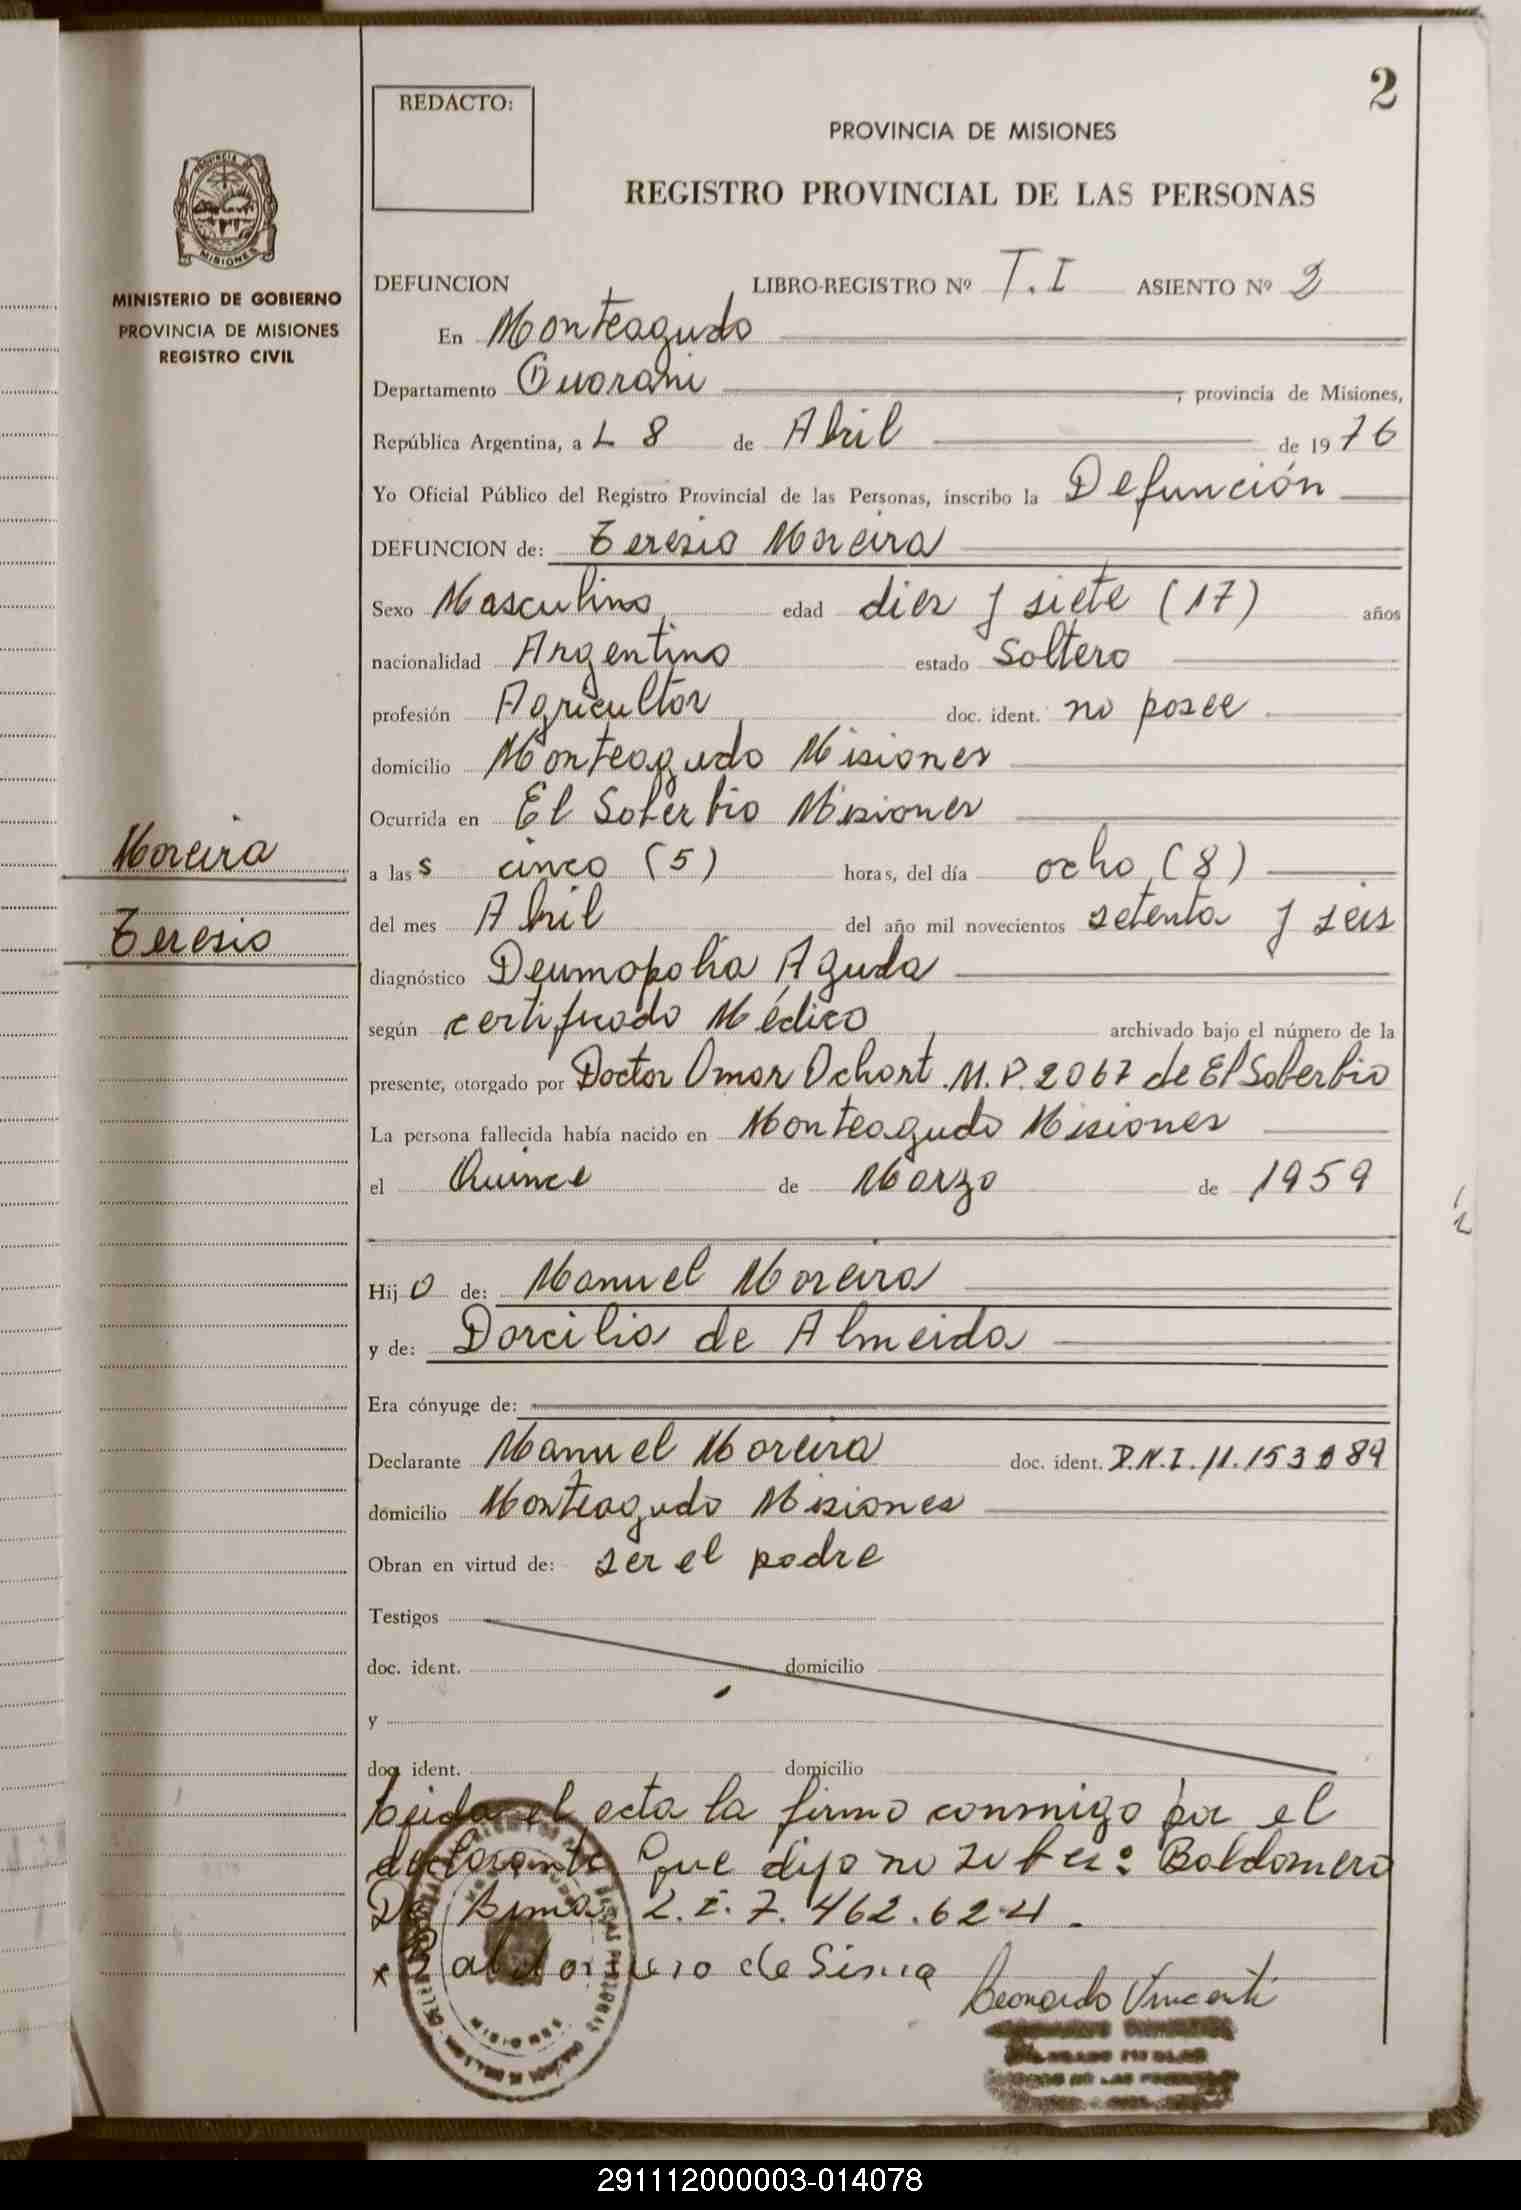 2
REDACTO:
PROVINCIA DE MISIONES
REGISTRO PROVINCIAL DE LAS PERSONAS
MINISTERIO DE GOBIERNO
PROVINCIA DE MISIONES
REGISTRO CIVIL
DEFUNCION LIBRO-REGISTRO Nº T.I ASIENTO Nº 2
En Monteagudo
Departamento Guarani, provincia de Misiones,
República Argentina, a L 8 de Abril de 1976
Yo Oficial Público del Registro Provincial de las Personas, inscribo la Defunción
DEFUNCION de: Teresio Moreira
Sexo Masculino edad diez y siete (17) años
nacionalidad Argentino estado Soltero
profesión Agricultor doc. ident. no posee
domicilio Monteagudo Misiones
Ocurrida en El Soberbio Misiones
Moreira
a las s cinco (5) horas, del día ocho (8)
Teresio
del mes Abril del año mil novecientos setenta y seis
diagnóstico Aguda
según certificado Médico archivado bajo el número de la
presente, otorgado por Doctor Omar Ochort M.P. 2067 de El Soberbio
La persona fallecida había nacido en Monteagudo Misiones
el Quince de Marzo de 1959
Hijo de: Manuel Moreira
y de: Dorcilia de Almeida
Era cónyuge de:
Declarante Manuel Moreira doc. ident. D.N.I. 11.153
domicilio Monteagudo Misiones
Obran en virtud de: ser el padre
Testigos
doc. ident. domicilio
y
doc. ident. domicilio
Leida el acta la firmo conmigo por el
declarante que dijo no saber: Baldomero
De 7.462.624.
x Baldomero de
Leonardo Vincenti
291112000003-014078